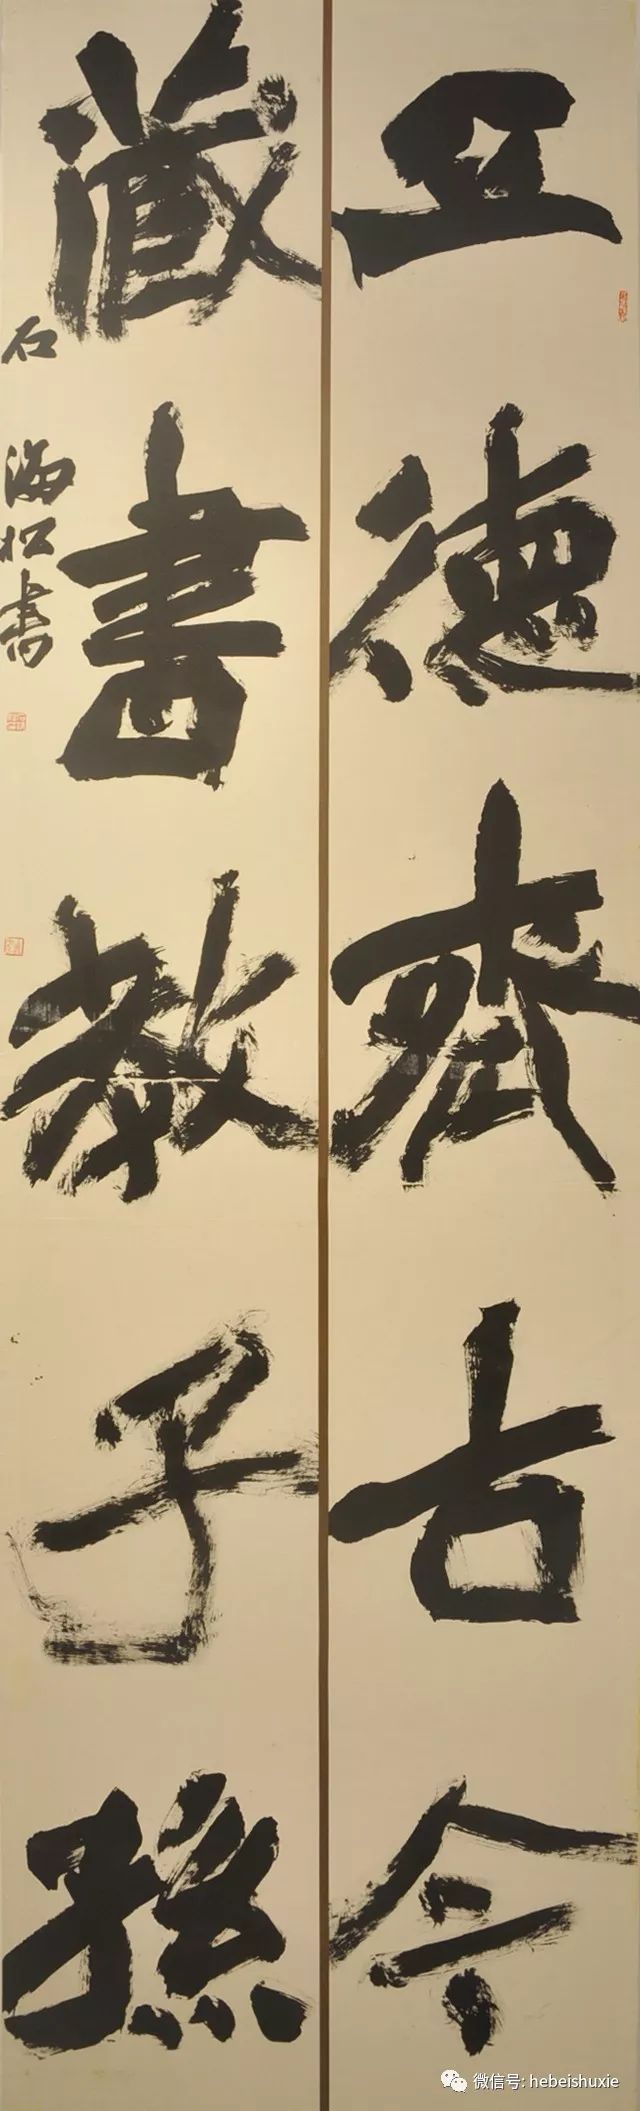 立德齊古今
藏書教子孫
石海松書
微信号: hebeishuxie